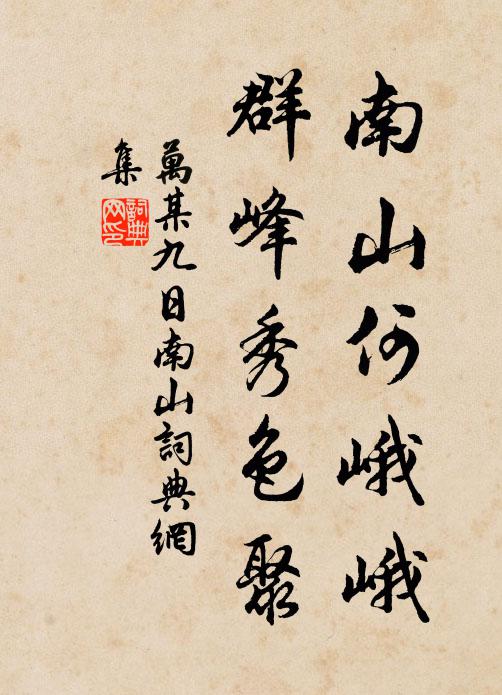 南山何峨峨
群峰秀色聚
萬某九日南山詞典網
集
詞典网印